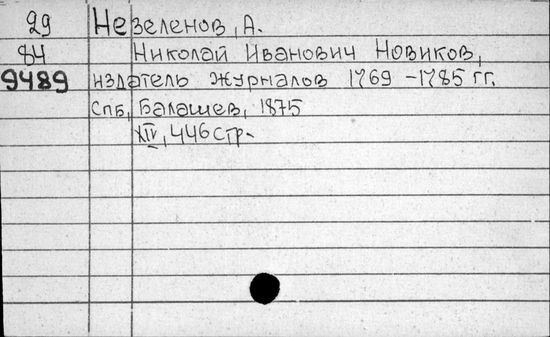 29 Незеленов, А.
84 Николай Иванович Новиков,
9489 издатель журналов 1769 - 1785 гг.
Спб, Балашев, 1875
XIV, 446 стр.